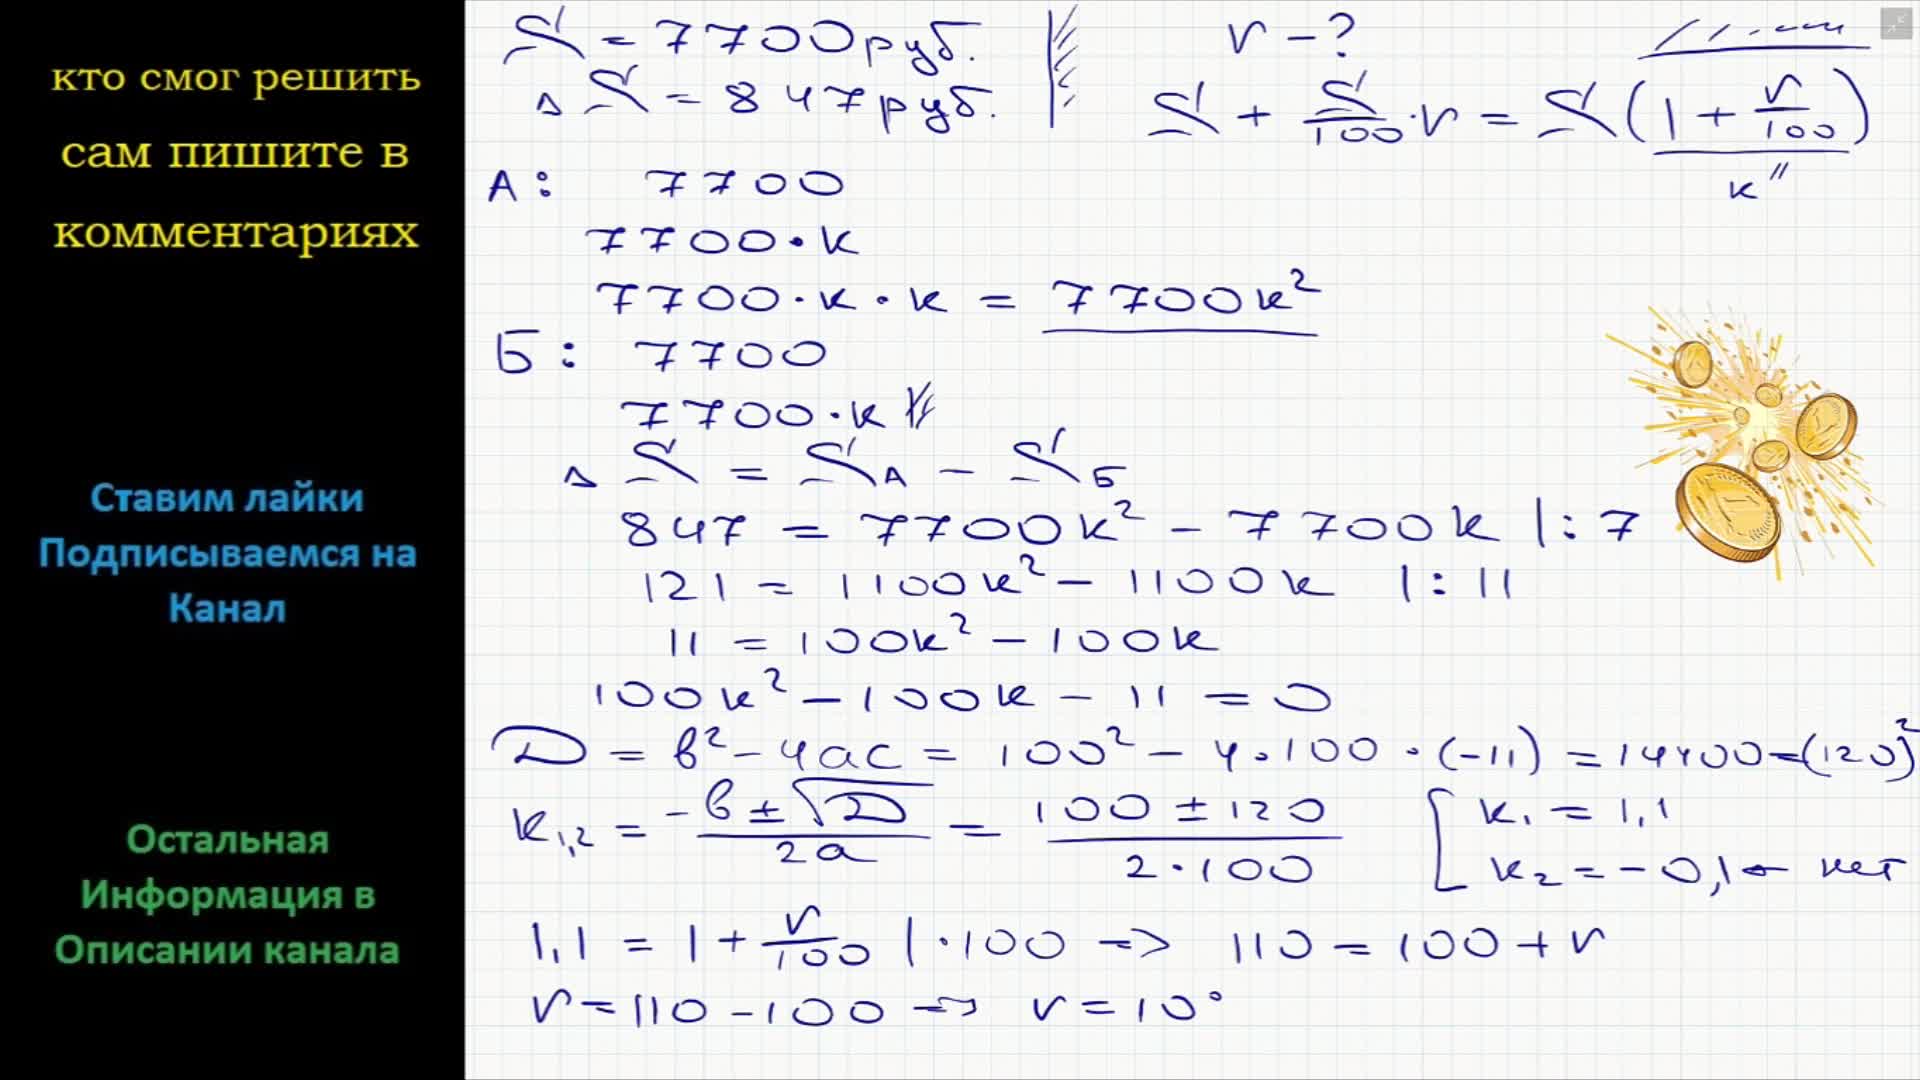 кто смог решить
сам пишите в
комментариях
Ставим лайки
Подписываемся на
Канал
Остальная
Информация в
Описании канала
S = 7700 руб.
△S = 847 руб.
r - ?
S + S/100 · r = S(1 + r/100)
к"
А: 7700
7700 · к
7700 · к · к = 7700к²
Б: 7700
7700 · к
△S = S_А - S_Б
847 = 7700к² - 7700к |: 7
121 = 1100к² - 1100к |: 11
11 = 100к² - 100к
100к² - 100к - 11 = 0
D = в² - 4ас = 100² - 4·100·(-11) = 14400 = (120)²
к₁,₂ = (-в ± √D)/(2а) = (100 ± 120)/(2·100)
[ к₁ = 1,1
к₂ = -0,1 ← нет
1,1 = 1 + r/100 |·100 => 110 = 100 + r
r = 110 - 100 => r = 10°